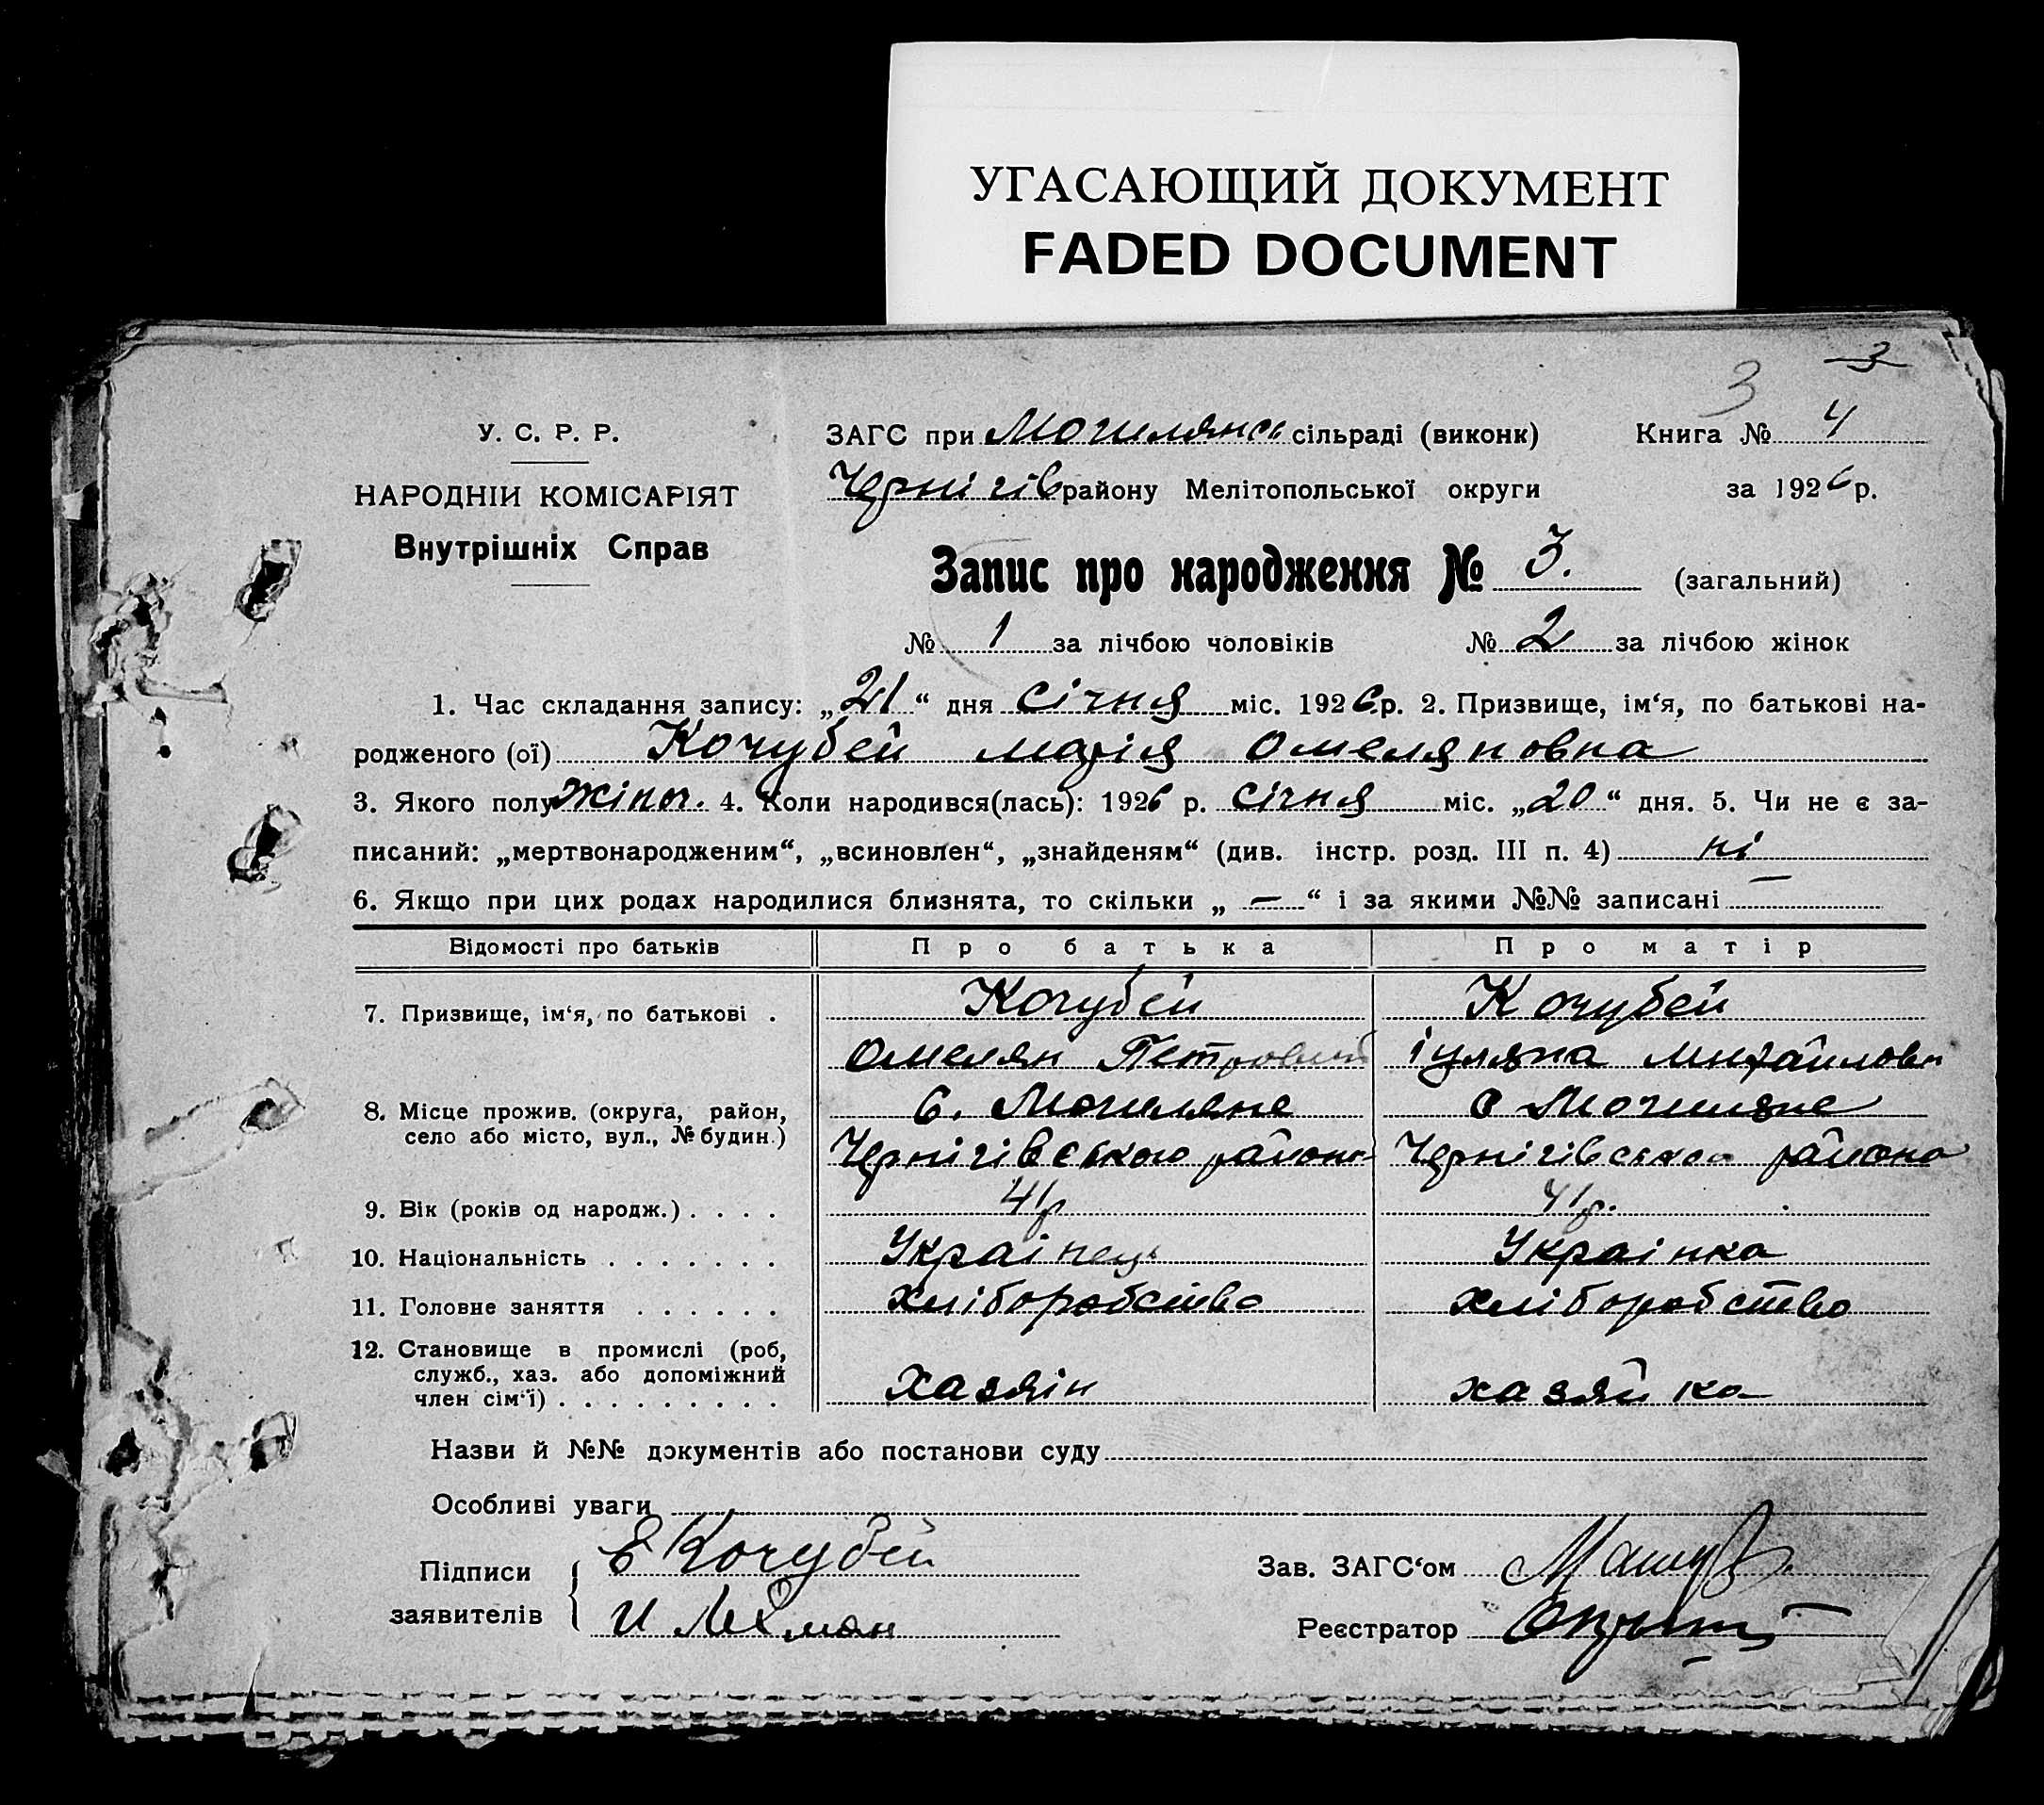 УГАСАЮЩИЙ ДОКУМЕНТ
FADED DOCUMENT
3
3
У. С. Р. Р.
НАРОДНІЙ КОМІСАРІЯТ
Внутрішніх Справ
ЗАГС при Могилянсь сільраді (виконк) Книга № 4
Чернігів району Мелітопольської округи за 1926 р.
Запис про народження № 3. (загальний)
№ 1 за лічбою чоловіків № 2 за лічбою жінок
1. Час складання запису: „21“ дня січня міс. 1926 р. 2. Призвище, ім‘я, по батькові на-
родженого (ої) Кочубей марія Омеляновна
3. Якого полу жіноч. 4. Коли народився(лась): 1926 р. січня міс. „20“ дня. 5. Чи не є за-
писаний: „мертвонародженим“, „всиновлен“, „знайденям“ (див. інстр. розд. III п. 4) ні
6. Якщо при цих родах народилися близнята, то скільки „ — “ і за якими №№ записані —
Відомості про батьків Про батька Про матір
7. Призвище, ім‘я, по батькові . Кочубей Кочубей
Омелян Петрович іуляна михайловн
8. Місце прожив. (округа, район, с. Могиляне с Могиляне
село або місто, вул., № будин.) Чернігівського району Чернігівського району
9. Вік (років од народж.) . . . . 41р 41р.
10. Національність . . . . . . . Українець Українка
11. Головне заняття . . . . . . хліборобство хліборобство
12. Становище в промислі (роб,
служб., хаз. або допоміжний
член сім‘ї) . . . . . . . . . хазяїн хазяйка
Назви й №№ документів або постанови суду
Особливі уваги
Підписи Е Кочубей Зав. ЗАГС‘ом
заявителів И Лехман Реєстратор